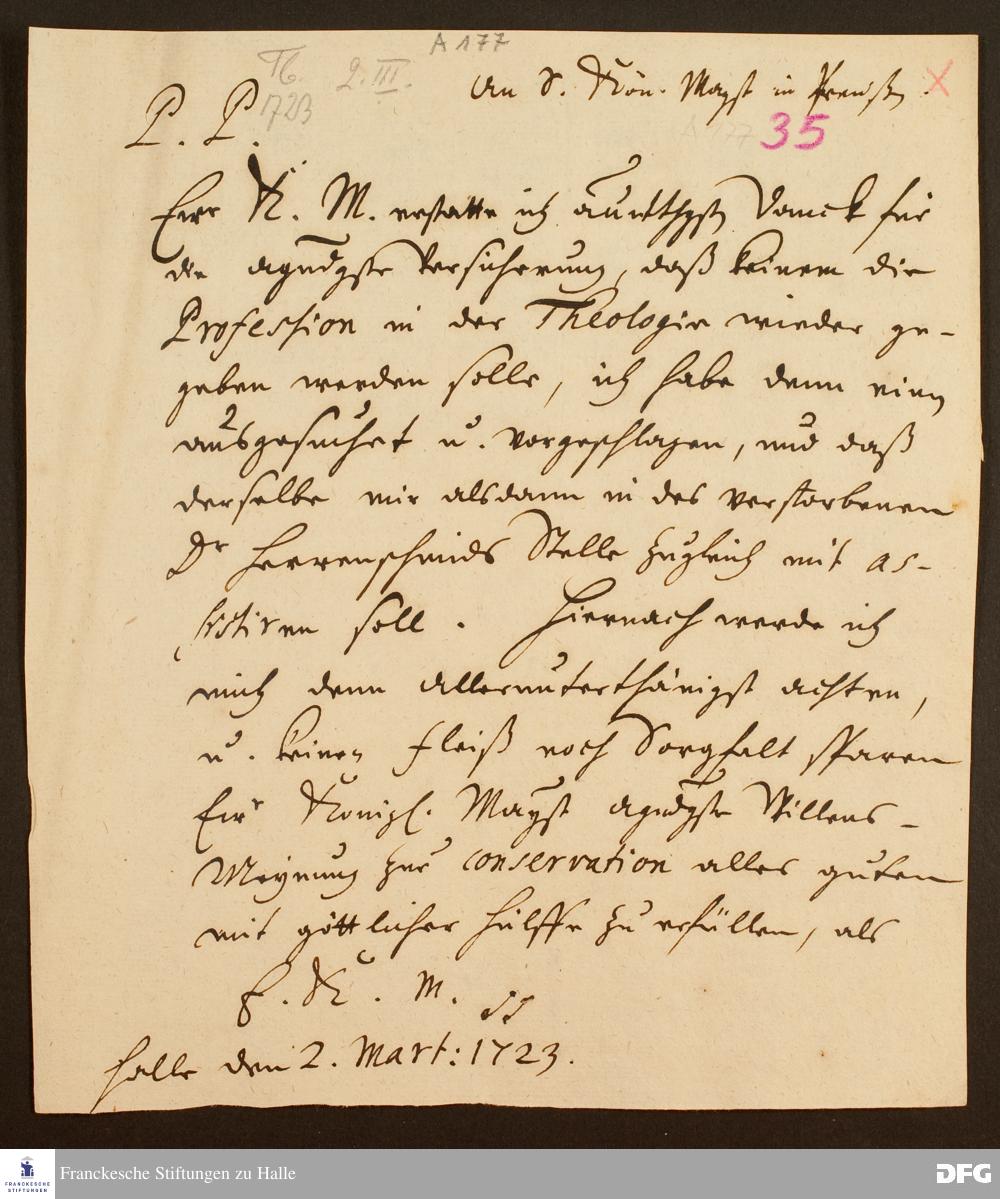 A 177
Tb. 2. III.
1723
An S. Kön. Mayst in Preußen. X
P. P.
A 177
35
Ewr K. M. erstatte ich Danck für
die agndgste Versicherung, daß keinem die
Profession in der Theologie wieder ge-
geben werden solle, ich habe denn einen
ausgesuchet u. vorgeschlagen, und daß
derselbe mir alsdann in des verstorbenen
Dr Herrenschmids Stelle zugleich mit as-
sistiren soll. Hiernach werde ich
mich denn allerunterthänigst achten,
u. keinen Fleiß noch Sorgfalt sparen
Ewr Königl. Mayst agndgste Willens-
Meynung zur conservation alles guten
mit göttlicher Hülffe zu erfüllen, als
E. K. M.
Halle den 2. Mart: 1723.
FRANCKESCHE
STIFTUNGEN
Franckesche Stiftungen zu Halle
DFG